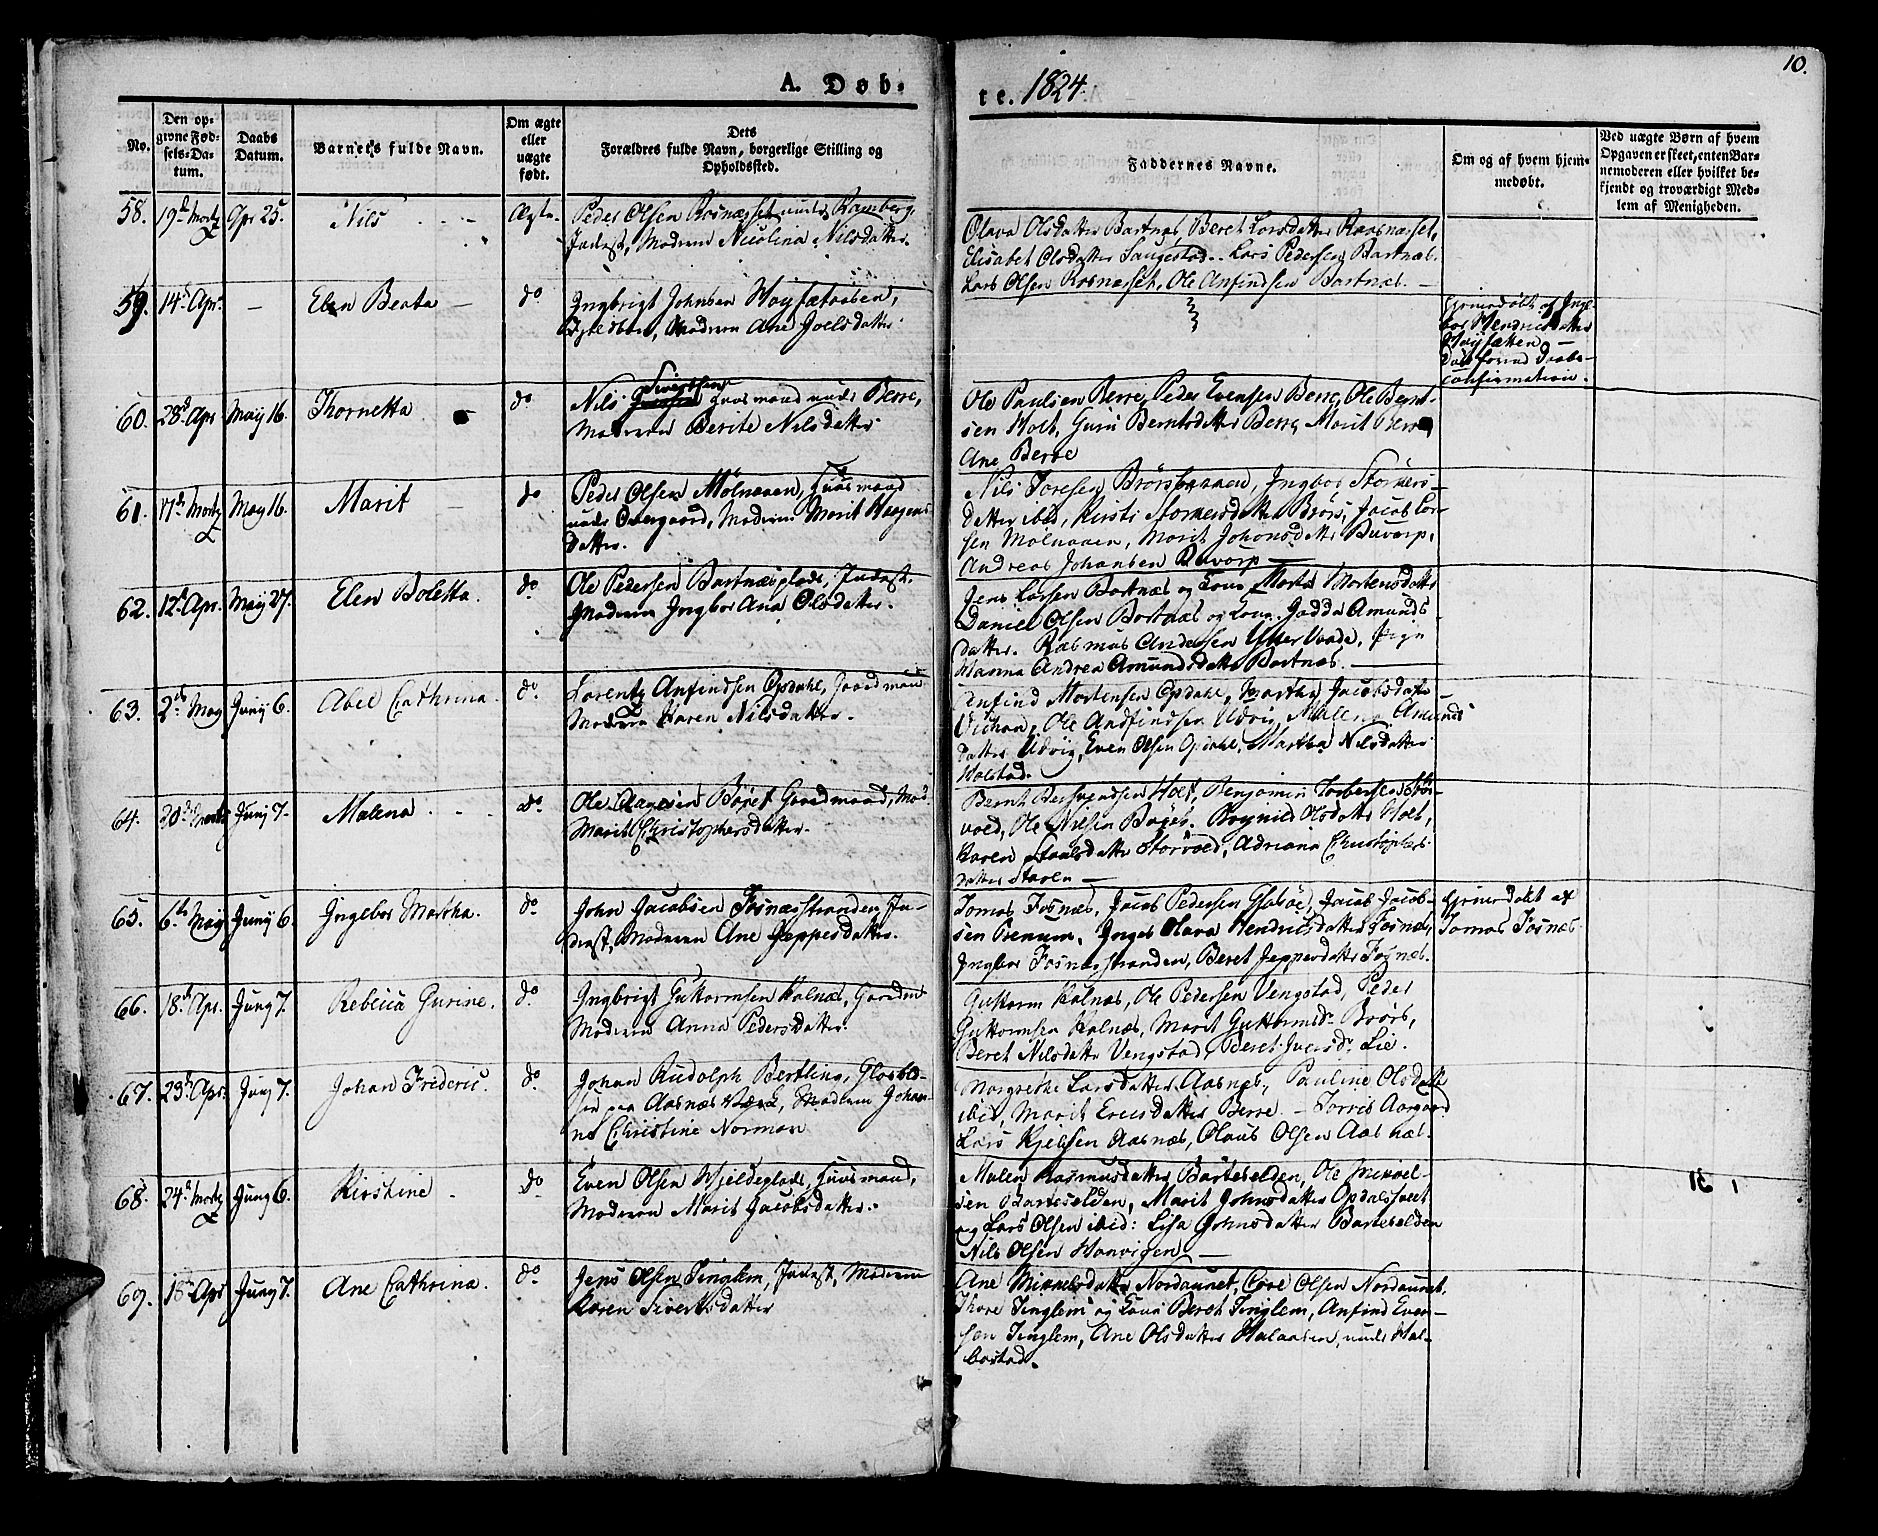 10.
A. Døb-
te. 1824.
No.
Den op-
givne Fød-
sels-Da-
tum.
Daabs
Datum.
Barnets fulde Navn.
Om ægte
eller
uægte
født.
Dets
Forældres fulde Navn, borgerlige Stilling og
Opholdssted.
Faddernes Navne.
Om og af hvem hjem-
medøbt.
Ved uægte Børn af hvem
Opgaven er skeet, enten Bar-
nemoderen eller hvilket be-
kjendt og troværdigt Med-
lem af Menigheden.
58. 19de Martz Apr 25. Nils Ægte
Peder Olsen Rosnæsset under Ramberg,
Inderst, Moderen Nicolina Nilsdatter.
Olava Olsdatter Bartnæs, Beret Larsdatter Raasnæsset,
Elisabet Olsdatter Saugestad. Lars Pedersen Bartnæs.
Lars Olsen Rosnæsset, Ole Anfindsen Bartnæs.
59. 14de Apr. — Elen Beata do
Ingbrigt Johnsen Høysætaasen,
Moderen Ane Joelsdatter.
Hjemmedøbt af Ingе-
bor Hendricsdatter
Høysætten —
død forend Daabs-
confirmation.
60. 28de Apr May 16. Thornetta do
Nils Sivertsen Huusmand under Berre,
Moderen Berite Nilsdatter.
Ole Paulsen Berre, Peder Evensen Berre, Ole Bernt-
sen Holt, Guru Berntsdatter Berre, Marit Berre,
Ane Berre
61. 17de Martz May 16. Marit do
Peder Olsen Mølnaaen, Huusmand
under Overgaard, Moderen Marit Haagens
datter.
Nils Toresen Brørsbraaen, Ingbor Størkers-
datter ibid, Kirsti Størkersdatter Brørs, Jacob Lar-
sen Molnaaen, Marit Johansdatter Buvarp,
Andreas Johansen Buvarp
62. 12te Apr. May 27. Elen Boletta. do.
Ole Pedersen Bartnæsplads, Inderst.
Moderen Ingbor Ana Olsdatter.
Jens Larsen Bartnæs og Kone Marta Mortensdatter
Daniel Olsen Bartnæs og Kone Jadda Amunds
datter. Rasmus Andersen Ytter Vaade, Pige
Hanna Andrea Amundsdatter Bartnæs.
63. 2den May Juny 6. Abel Cathrina. do.
Lorentz Anfindsen Opdahl, Gaardmand
Moderen Karen Nilsdatter.
Anfind Mortensen Opdahl, Martha Jacobsdatter
Vichan, Ole Andfindsen Udvig, Malena Amunds
datter Udvig, Even Olsen Opdahl, Martha Nilsdatter
Holstad.
64. 20de Martz Juny 7. Malena do
Ole Aagesen Bøjet Gaardmand, Mod.
Marit Christophersdatter.
Bernt Bersvendsen Holt, Benjamin Torbersen Stør-
vold, Ole Nilsen Bøjes. Ragnild Olsdatter Holt,
Karen Staalsdatter Størvold, Adriana Christophers
datter Staren —
65. 6te May Juny 6. Ingebor Martha. do.
John Jacobsen Fosnæsstranden, In-
derst, Moderen Ane Jeppesdatter.
Tomas Fosnæs, Jacob Pedersen Gladsøe, Jacob Jacob-
sen Brenum, Inger Olava Hendricsdatter Fosnæs,
Ingbor Fosnæsstranden, Beret Jeppesdatter Fosnæs.
Hjemmedøbt af
Tomas Fosnæs.
66. 18de Apr. Juny 7. Rebecca Gurine. do.
Ingbrigt Guttormsen Kalnæs, Gaardm
Moderen Anna Pedersdatter.
Guttorm Kalnæs, Ole Pedersen Vengstad, Peder
Guttormsen Kalnæs, Marit Guttormsdr Brørs,
Beret Nilsdatter Vengstad, Beret Iversdr Lie.
67. 23de Apr. Juny 7. Johan Frederic. do.
Johan Rudolph Bertling, Glasblæ-
ser paa Aasnæs Værk, Moderen Johan-
na Christine Norman
Margrethe Larsdatter Aasnæs, Pauline Olsdatter
ibid, Marit Ericsdatter Berre. — Torris Aargaard
Lars Kjelsen Aasnæs, Olaus Olsen Aasnæs.
68. 24de Martz Juny 6. Kirstine do.
Even Olsen Hjeldeplads, Huusmand,
Moderen Marit Jacobsdatter.
Malen Rasmusdatter Barteselden, Ole Mikkel-
sen Barteselden, Marit Johnsdatter Opdalstveet
og Lars Olsen ibid: Lisa Johnsdatter Barteselden
Nils Olsen Hanvigen —
69. 18de Apr Juny 7. Ane Cathrina. do.
Jens Olsen Tinglem, Inderst, Moderen
Karen Sivertsdatter
Ane Mikkelsdatter Nordaunet, Ove Olsen Nordaunet,
Thore Tinglem og Kone Beret Tinglem, Anfind Even-
sen Tinglem, Ane Olsdatter Halaasen, under Hal-
bostad.